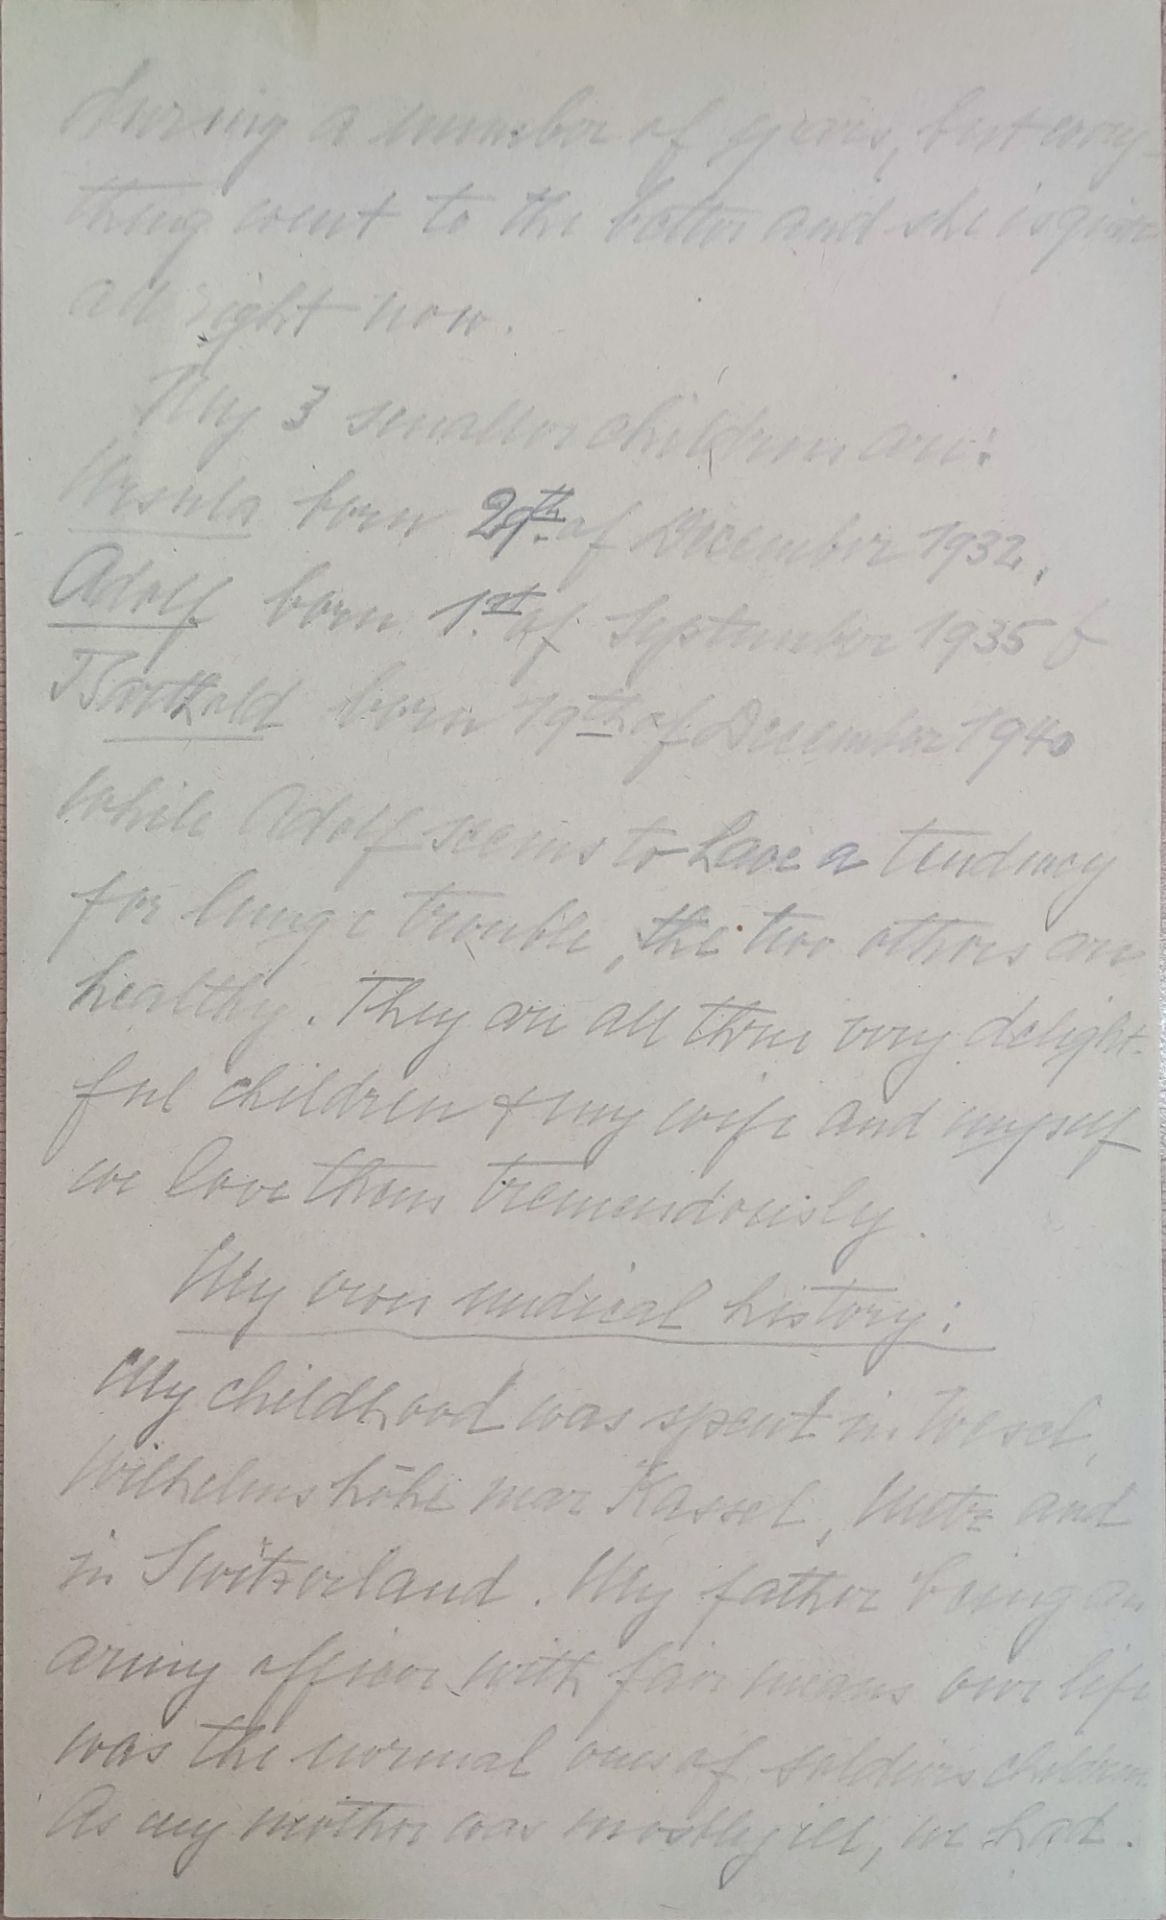 during a number of years, but every-
thing went to the better and she is quite
all right now.
My 3 smaller children are:
Ursula born 29th. of December 1932,
Adolf born 1.st of September 1935 &
Barthold born 19th of December 1940
While Adolf seems to have a tendency
for lunge trouble, the two others are
healthy. They are all three very delight-
ful children & my wife and myself
we love them tremendously.
My own medical history:
My childhood was spent in Wesel,
Wilhelmshöhe near Kassel, Metz and
in Switzerland. My father being an
army officer with fair means our life
was the normal one of soldiers children.
As my mother was mostly ill, we had.